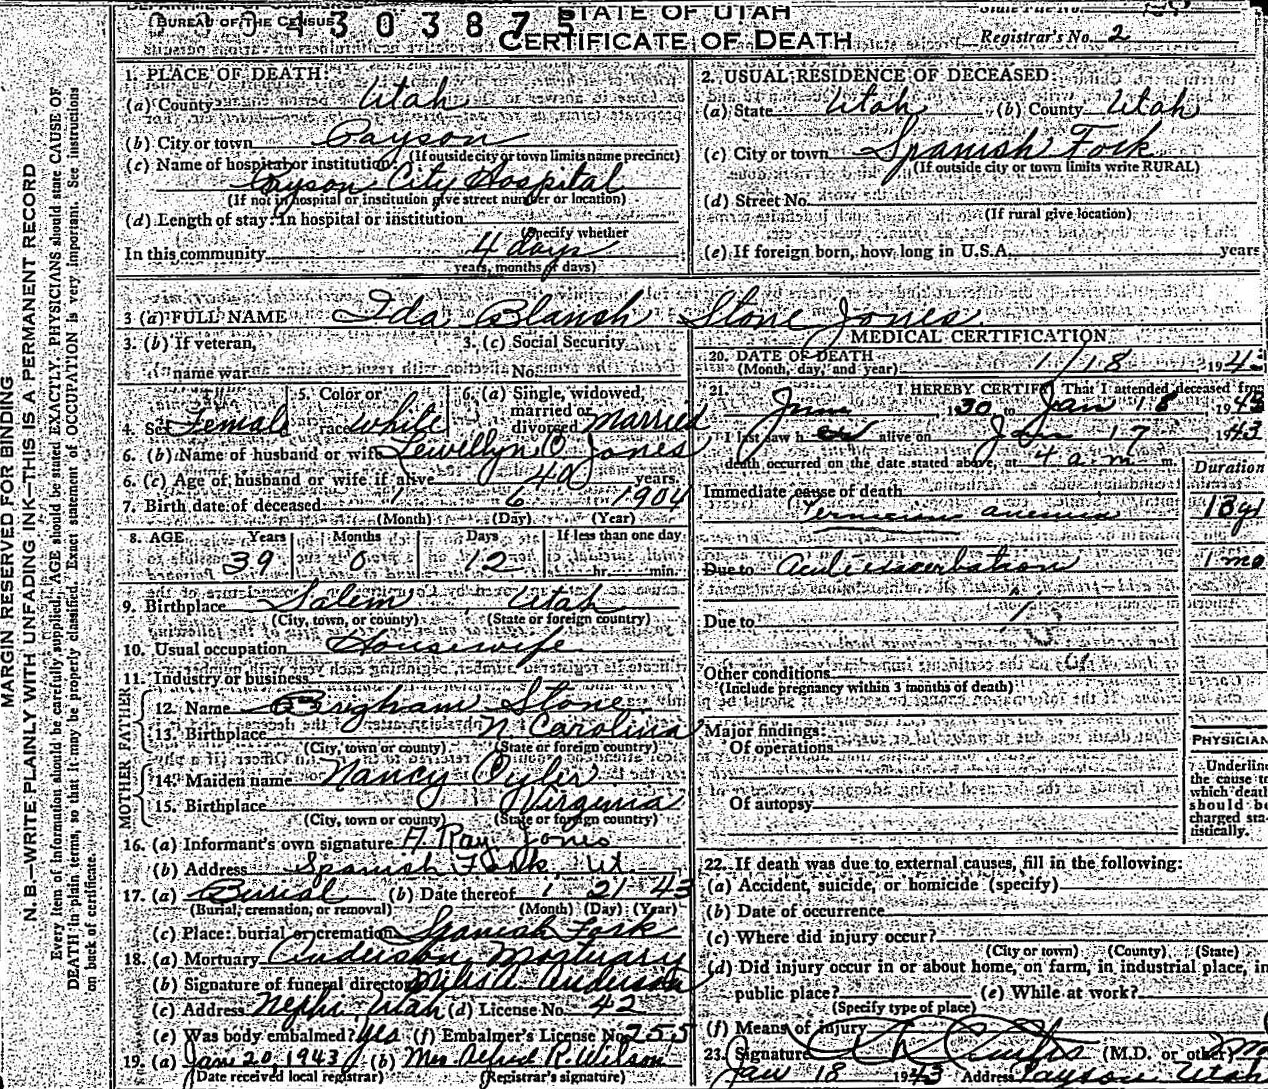 BUREAU OF THE CENSUS
04303875
STATE OF UTAH
CERTIFICATE OF DEATH
State File No. 28
Registrar's No. 2
MARGIN RESERVED FOR BINDING
N. B.—WRITE PLAINLY WITH UNFADING INK—THIS IS A PERMANENT RECORD
Every item of information should be carefully supplied. AGE should be stated EXACTLY. PHYSICIANS should state CAUSE OF
DEATH in plain terms, so that it may be properly classified. Exact statement of OCCUPATION is very important. See instructions
on back of certificate.
1. PLACE OF DEATH:
(a) County Utah
(b) City or town Payson
(If outside city or town limits name precinct)
(c) Name of hospital or institution:
Payson City Hospital
(If not in hospital or institution give street number or location)
(d) Length of stay: In hospital or institution
(Specify whether
In this community 4 days
years, months or days)
2. USUAL RESIDENCE OF DECEASED:
(a) State Utah (b) County Utah
(c) City or town Spanish Fork
(If outside city or town limits write RURAL)
(d) Street No.
(If rural give location)
(e) If foreign born, how long in U.S.A. years
3 (a) FULL NAME Ida Blansh Stone Jones
3. (b) If veteran,
name war
3. (c) Social Security
No.
4. Sex Female
5. Color or
race white
6. (a) Single, widowed,
married or
divorced married
6. (b) Name of husband or wife Lewillyn O Jones
6. (c) Age of husband or wife if alive 40 years
7. Birth date of deceased 1 6 1904
(Month) (Day) (Year)
8. AGE Years Months Days If less than one day
39 0 12 hr. min.
9. Birthplace Salem Utah
(City, town, or county) (State or foreign country)
10. Usual occupation Housewife
11. Industry or business
FATHER
12. Name Brigham Stone
13. Birthplace N Carolina
(City, town or county) (State or foreign country)
MOTHER
14. Maiden name Nancy Oyler
15. Birthplace Virginia
(City, town or county) (State or foreign country)
16. (a) Informant's own signature A Ray Jones
(b) Address Spanish Fork, Ut
17. (a) Burial (b) Date thereof 1 21 43
(Burial, cremation, or removal) (Month) (Day) (Year)
(c) Place: burial or cremation Spanish Fork
18. (a) Mortuary Anderson Mortuary
(b) Signature of funeral director Miles A. Anderson
(c) Address Nephi Utah (d) License No. 42
(e) Was body embalmed? yes (f) Embalmer's License No. 255
19. (a) Jan 20, 1943 (b) Mrs. R. Wilson
(Date received local registrar) (Registrar's signature)
MEDICAL CERTIFICATION
20. DATE OF DEATH
(Month, day, and year) 1/18 1943
21. I HEREBY CERTIFY That I attended deceased from
1930 to Jan 18 1943
I last saw her alive on Jan 17 1943
death occurred on the date stated above, at 4 a.m m.
Duration
Immediate cause of death
Pernicious anemia 13 yr
Due to Acute exacerbation 1 mo
Due to
Other conditions
(Include pregnancy within 3 months of death)
Major findings:
Of operations
Of autopsy
PHYSICIAN
Underline
the cause to
which death
should be
charged sta-
tistically.
22. If death was due to external causes, fill in the following:
(a) Accident, suicide, or homicide (specify)
(b) Date of occurrence
(c) Where did injury occur?
(City or town) (County) (State)
(d) Did injury occur in or about home, on farm, in industrial place, in
public place? (e) While at work?
(Specify type of place)
(f) Means of injury
23. Signature Curtis (M.D. or other) MD
Jan 18 1943 Address Payson Utah